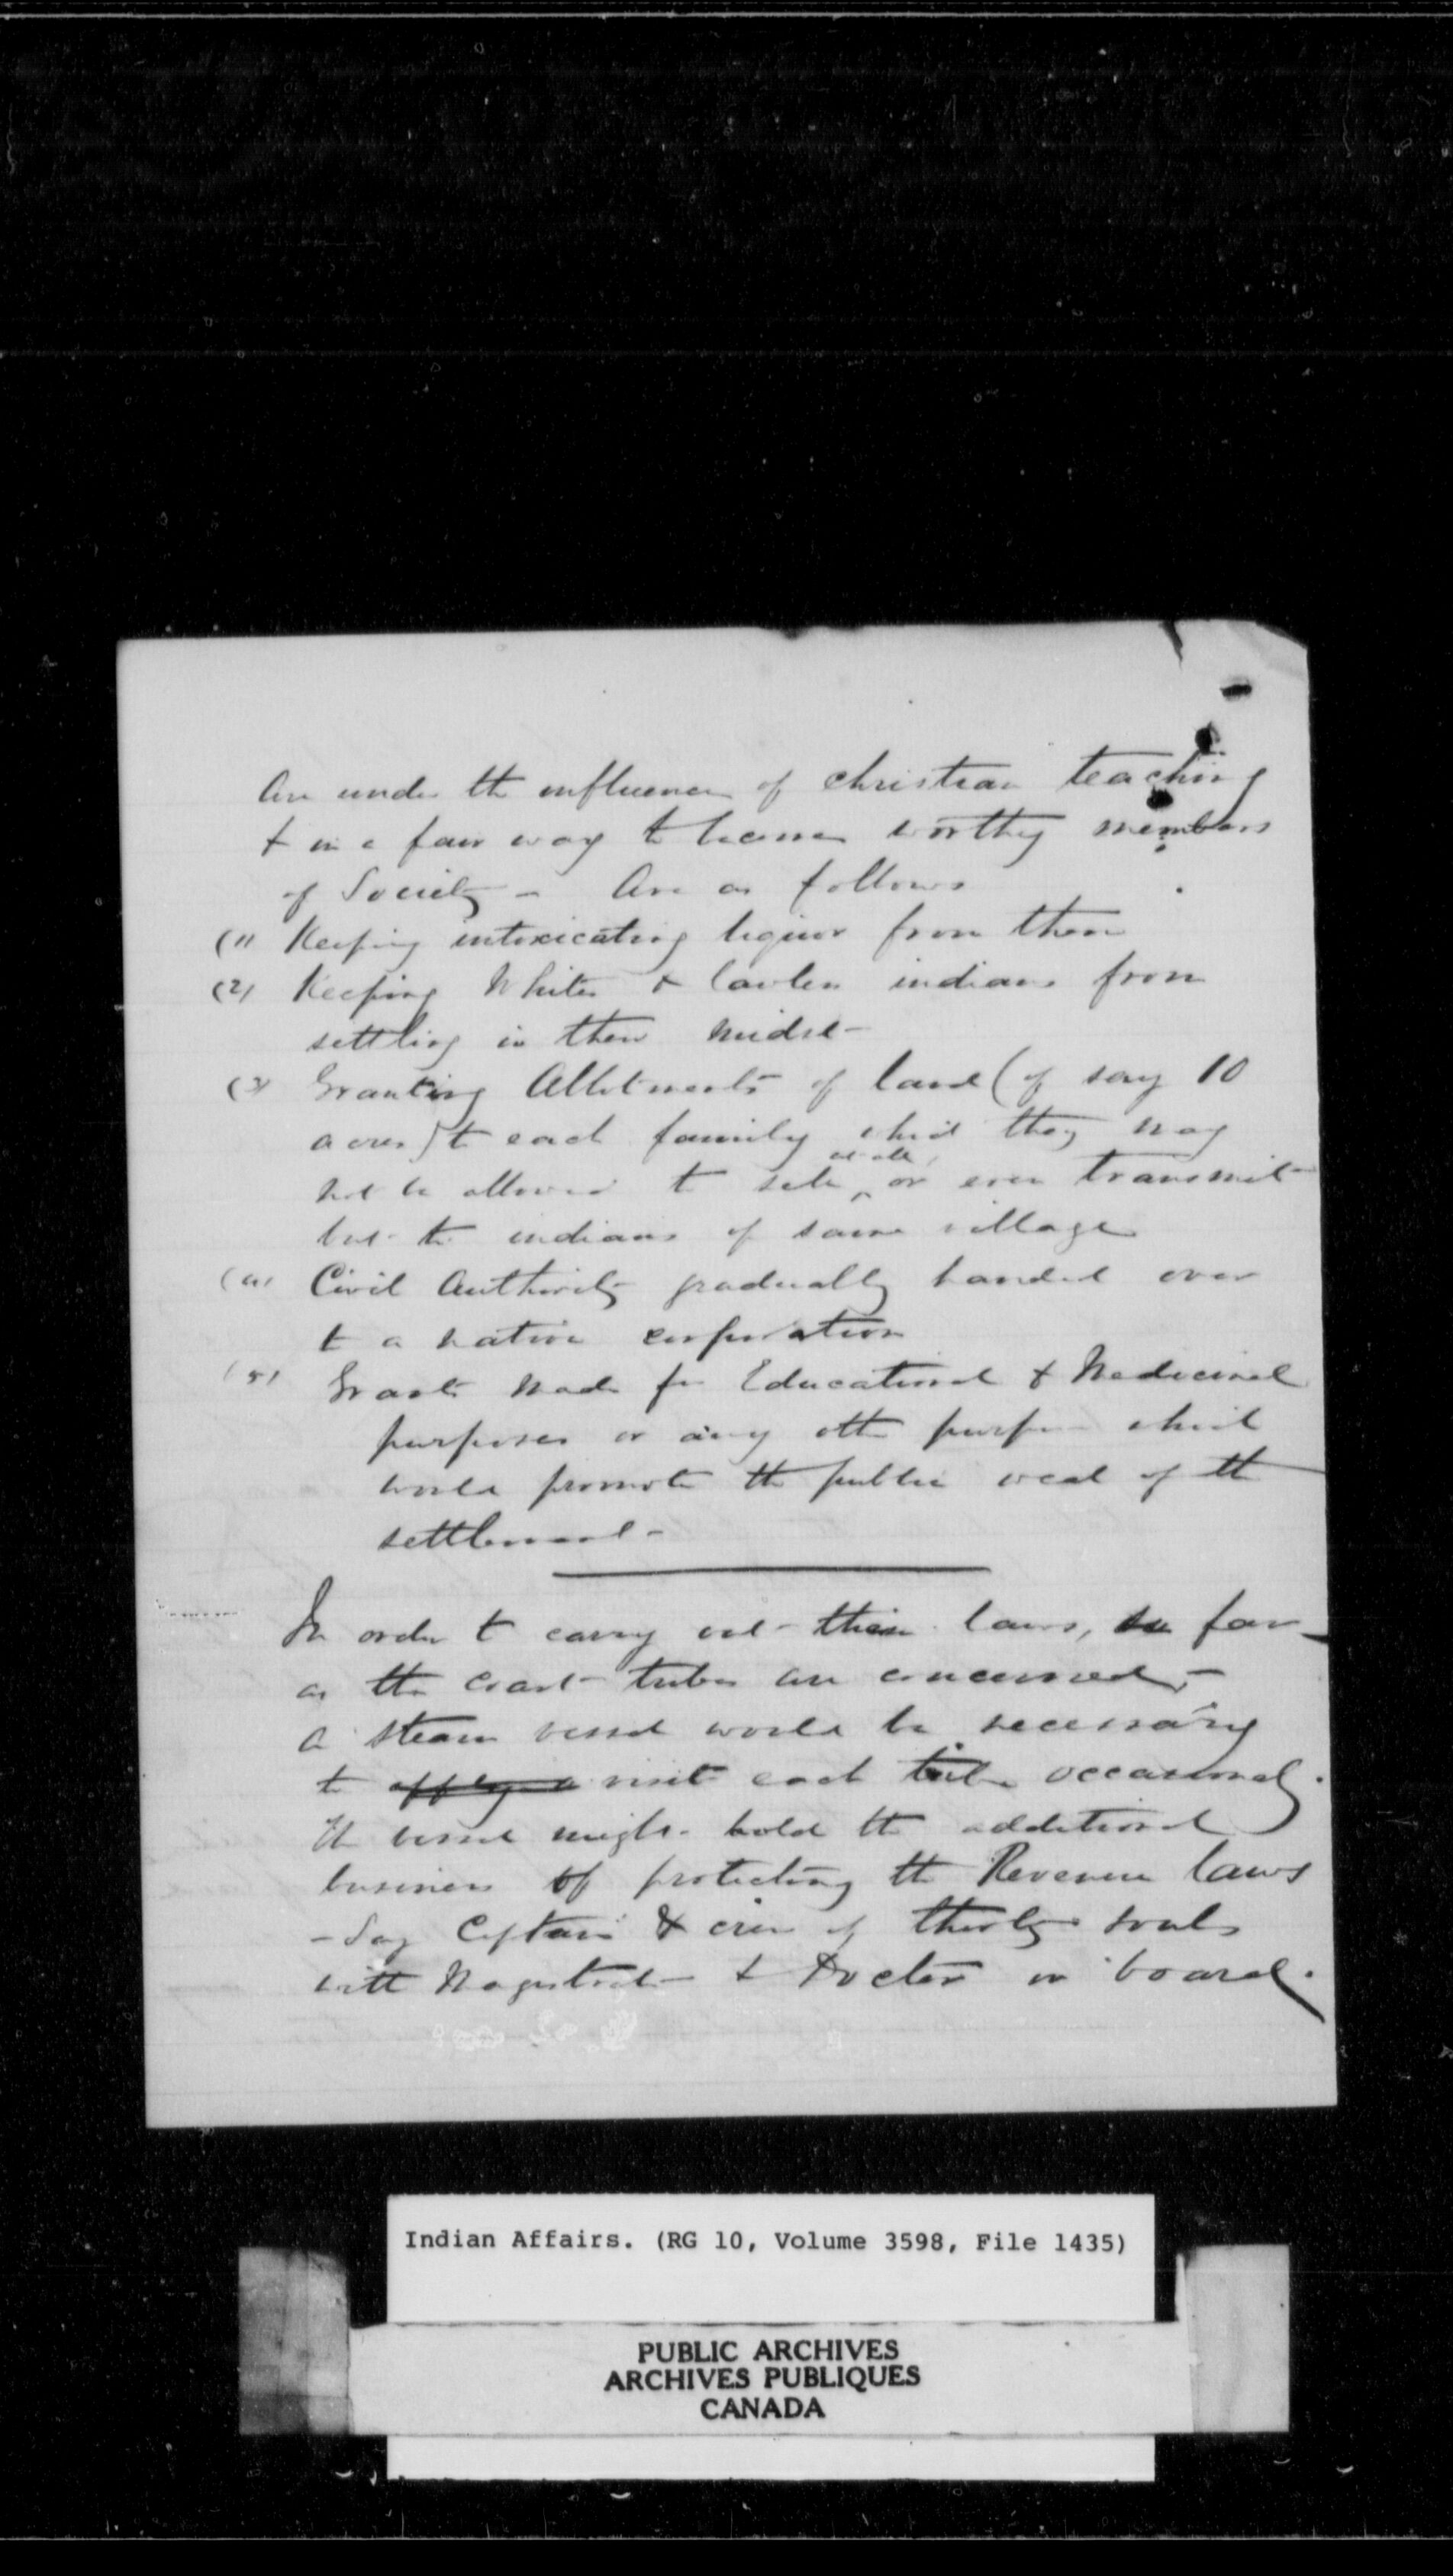 Are under the influence of christian teaching
& in a fair way to become worthy members
of Society – Are as follows
(1) Keeping intoxicating liquor from them
(2) Keeping Whites & lawless indians from
settling in their midst –
(3) Granting Allotments of land (of say 10
acres) to each family which they may
not be allowed to sell at all, or even transmit
but to indians of same village
(4) Civil Authority gradually handed over
to a native corporation
(5) Grants made for Educational & Medicinal
purposes or any other purpose which
would promote the public weal of the
settlement –
In order to carry out these laws, so far
as the coast tribes are concerned, –
a steam vessel would be necessary
to apply a visit each tribe occasionally.
The vessel might hold the additional
business of protecting the Revenue laws
– Say Captain & crew of thirty souls
with Magistrate & Doctor on board.
Indian Affairs. (RG 10, Volume 3598, File 1435)
PUBLIC ARCHIVES
ARCHIVES PUBLIQUES
CANADA